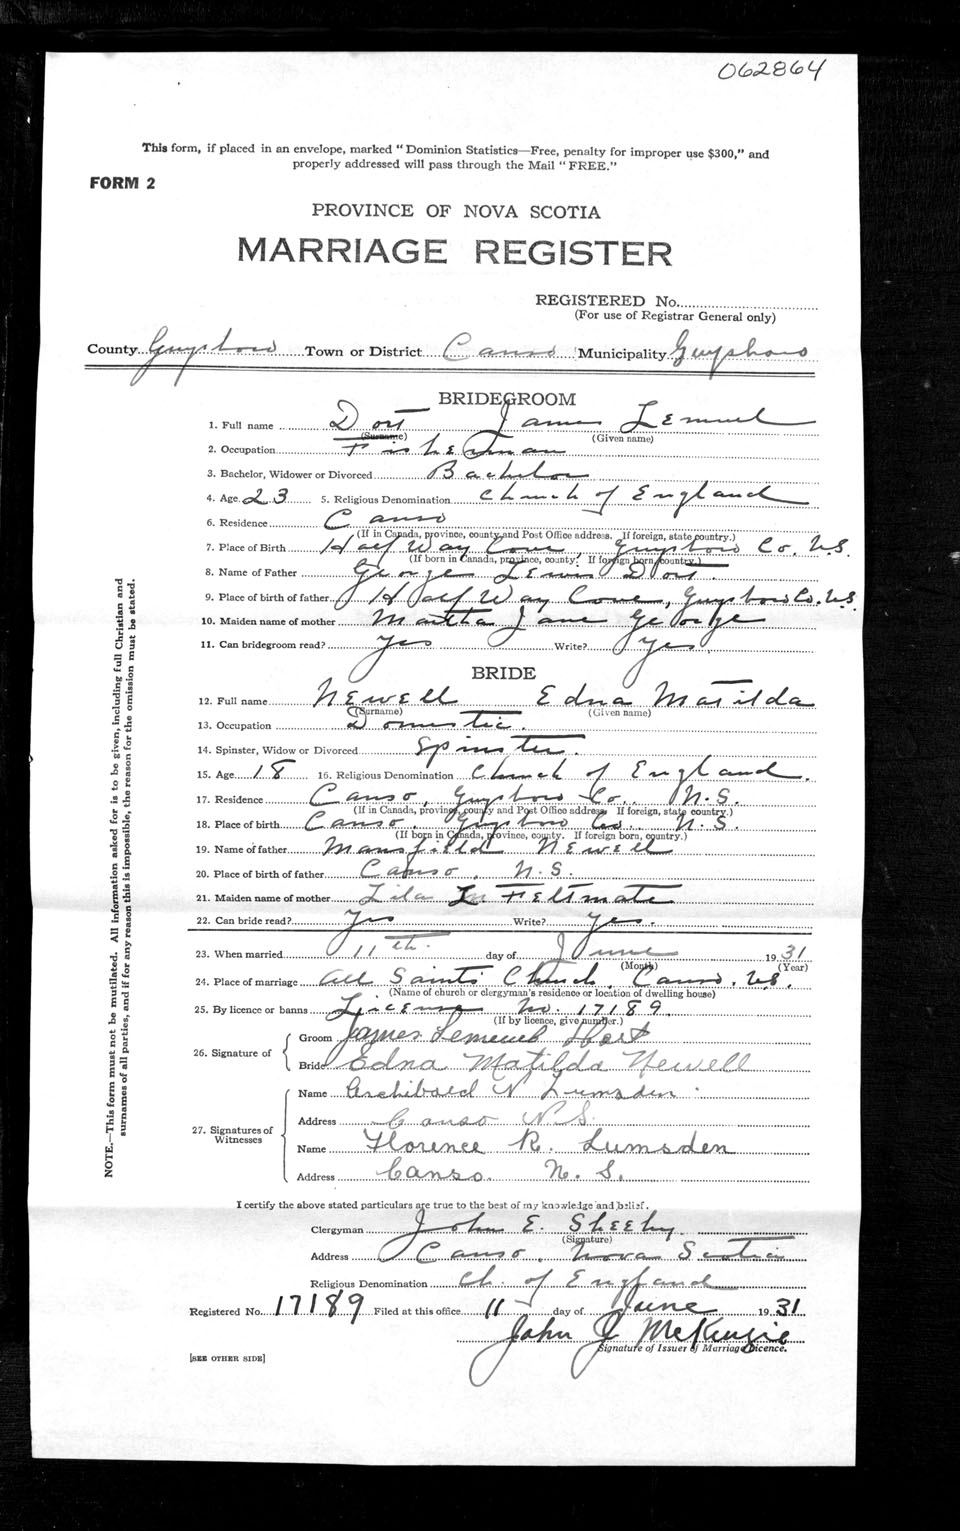 062864
This form, if placed in an envelope, marked "Dominion Statistics—Free, penalty for improper use $300," and
properly addressed will pass through the Mail "FREE."
FORM 2
PROVINCE OF NOVA SCOTIA
MARRIAGE REGISTER
REGISTERED No.
(For use of Registrar General only)
County Guysboro Town or District Canso Municipality Guysboro
BRIDEGROOM
1. Full name Dort James Lemuel
(Surname) (Given name)
2. Occupation Fisherman
3. Bachelor, Widower or Divorced Bachelor
4. Age 23 5. Religious Denomination Church of England
6. Residence Canso
(If in Canada, province, county and Post Office address. If foreign, state country.)
7. Place of Birth Half Way Cove, Guysboro Co. N.S.
(If born in Canada, province, county. If foreign born, country.)
8. Name of Father George Lewis Dort.
9. Place of birth of father Half Way Cove, Guysboro Co. N.S.
10. Maiden name of mother Martha Jane George
11. Can bridegroom read? Yes Write? Yes.
BRIDE
12. Full name Newell Edna Matilda
(Surname) (Given name)
13. Occupation Domestic.
14. Spinster, Widow or Divorced Spinster.
15. Age 18 16. Religious Denomination Church of England.
17. Residence Canso, Guysboro Co. N.S.
(If in Canada, province, county and Post Office address. If foreign, state country.)
18. Place of birth Canso, Guysboro Co. N.S.
(If born in Canada, province, county. If foreign born, country.)
19. Name of father Mansfield Newell
20. Place of birth of father Canso, N.S.
21. Maiden name of mother Lida Feltmate
22. Can bride read? Yes Write? Yes.
23. When married 11th. day of June 1931
(Month) (Year)
24. Place of marriage All Saints Church, Canso, N.S.
(Name of church or clergyman's residence or location of dwelling house)
25. By licence or banns License No. 17189.
(If by licence, give number.)
26. Signature of Groom James Lemuel Dort
Bride Edna Matilda Newell
27. Signatures of Witnesses
Name Archibald N Lumsden
Address Canso N.S.
Name Florence R. Lumsden
Address Canso. N.S.
I certify the above stated particulars are true to the best of my knowledge and belief.
Clergyman John E. Sheehy.
(Signature)
Address Canso, Nova Scotia
Religious Denomination Ch. of England
Registered No. 17189 Filed at this office 11 day of June 1931
John J McKenzie
Signature of Issuer of Marriage Licence.
[SEE OTHER SIDE]
NOTE.—This form must not be mutilated. All information asked for is to be given, including full Christian and
surnames of all parties, and if for any reason this is impossible, the reason for the omission must be stated.